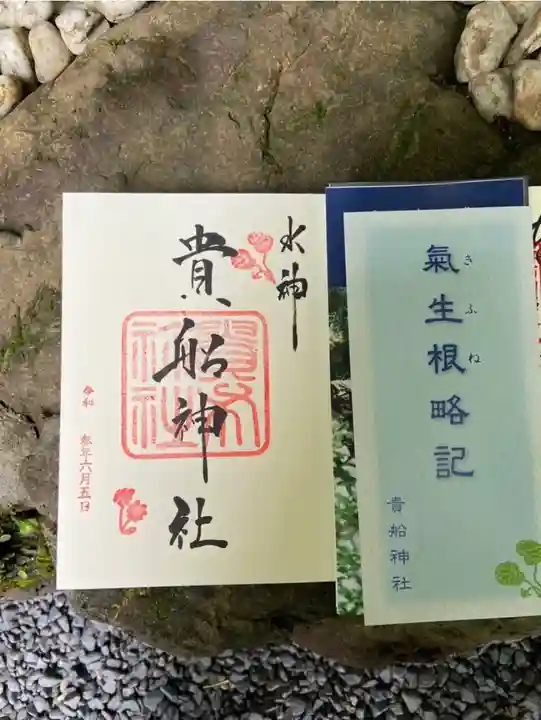 水神
貴船神社
令和 参年六月五日
氣生根略記
きふね
貴船神社